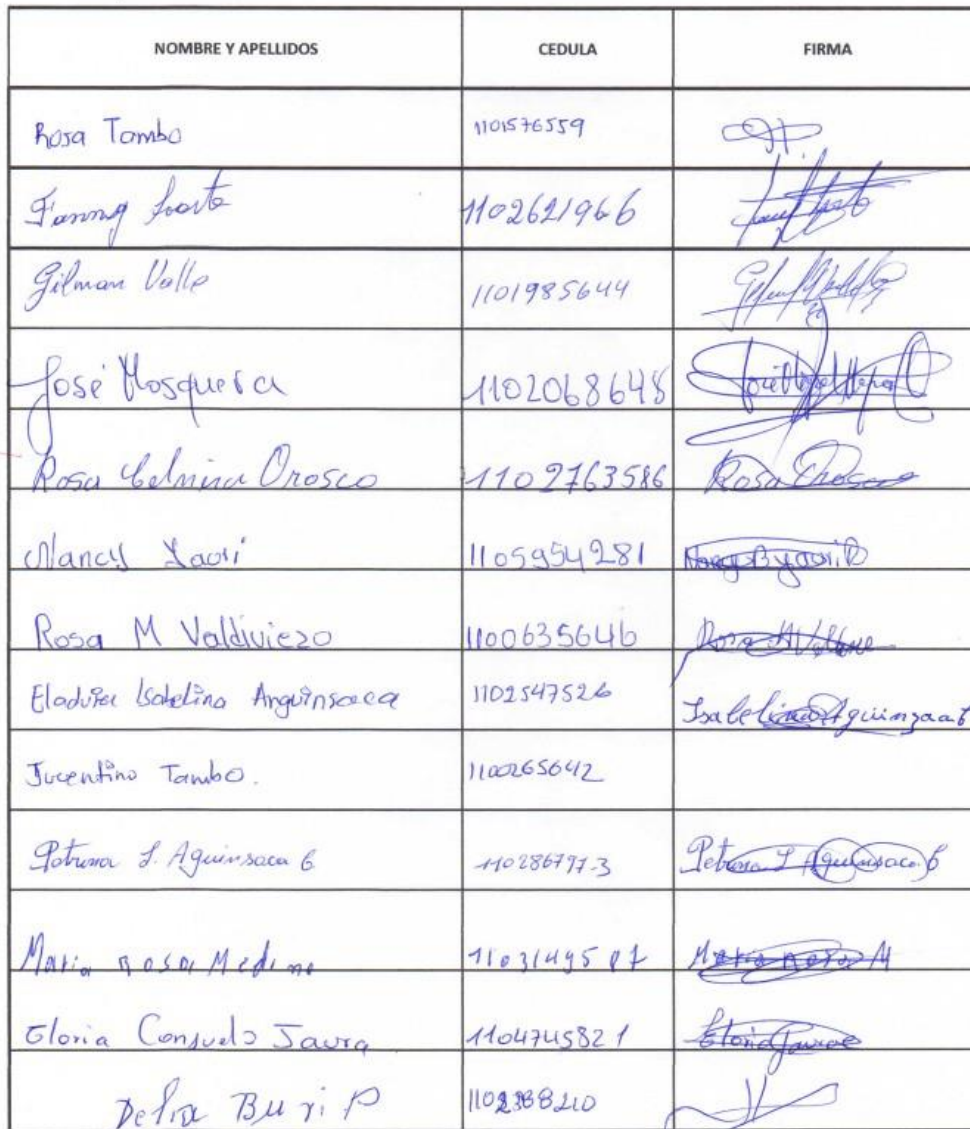 NOMBRE Y APELLIDOS CEDULA FIRMA
Rosa Tambo 1101576559
Fanny 1102621966
Gilman Valle 1101985644
José Mosquera 1102068648
Rosa Celmira Orosco 1102763586 Rosa Orosco
Nancy Yaori 1105954281
Rosa M Valdiviezo 1100635646 Rosa M
Isabelina Anguinsaca 1102547526 Isabelina Aguinzaca G
Jucentino Tambo. 1100265642
Petrona S. Aguinsaca G 110286797-3 Petrona S Aguinsaca G
Maria Rosa Medina 1103149587 Maria Rosa M
Gloria Consuelo Jaura 1104745821 Gloria
Delia Buri P